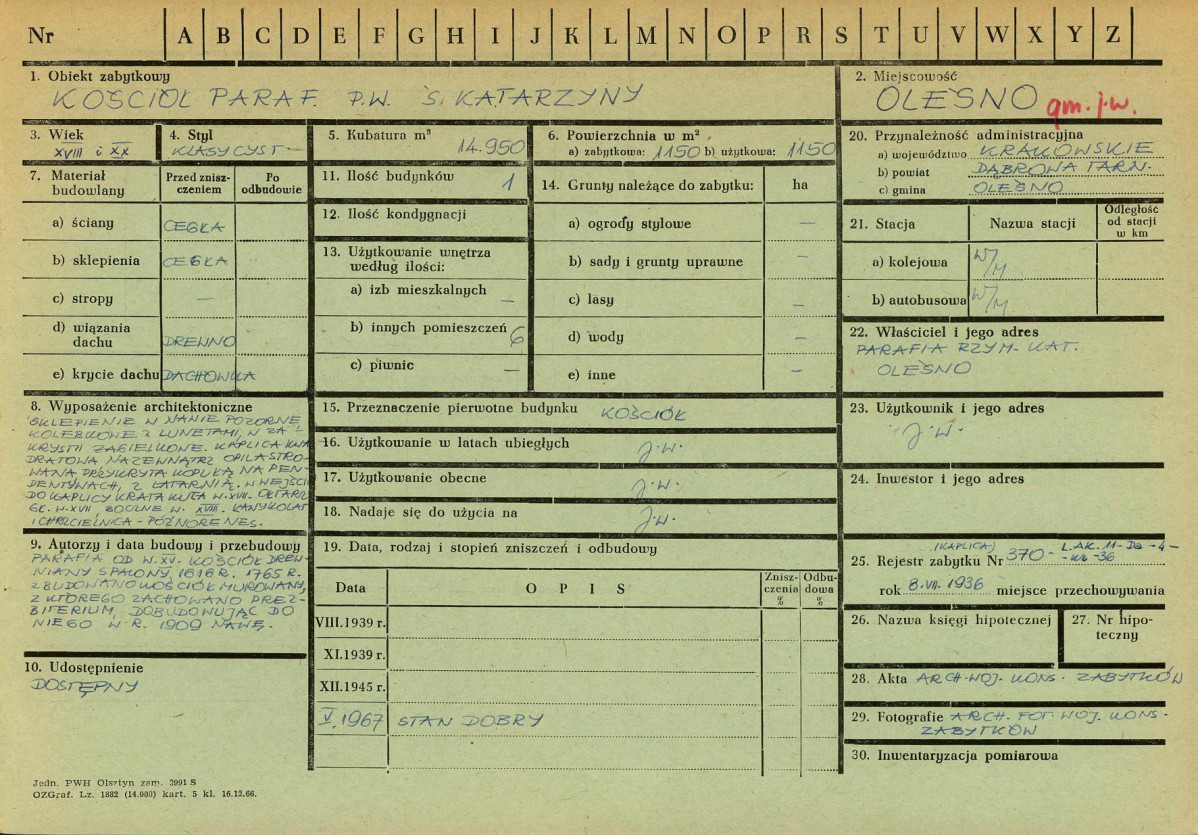 Nr A B C D E F G H I J K L M N O P R S T U V W X Y Z
1. Obiekt zabytkowy
KOŚCIÓŁ PARAF. P.W. Ś. KATARZYNY
2. Miejscowość
OLEŚNO gm. j.w.
3. Wiek
XVIII i XX
4. Styl
KLASYCYST.
5. Kubatura m³
14.950
6. Powierzchnia w m²
a) zabytkowa: 1150 b) użytkowa: 1150
7. Materiał budowlany
Przed zniszczeniem
Po odbudowie
a) ściany CEGŁA
b) sklepienia CEGŁA
c) stropy —
d) wiązania dachu DREWNO
e) krycie dachu DACHÓWKA
8. Wyposażenie architektoniczne
SKLEPIENIE W NAWIE POZORNE
KOLEBKOWE Z LUNETAMI, W ZA-
KRYSTII ŻAGIELKOWE. KAPLICA KWA
DRATOWA NAZEWNĄTRZ OPILASTRO-
WANA, PRZYKRYTA KOPUŁĄ NA PEN-
DENTYWACH, Z LATARNIĄ. W WEJŚCIU
DO KAPLICY KRATA KUTA W. XVII. OŁTARZ
GŁ. W. XVII, BOCZNE W. XVIII. KANYKOLAT
I CHRZCIELNICA - PÓŹNORENES.
9. Autorzy i data budowy i przebudowy
PARAFIA OD W. XV. KOŚCIÓŁ DREW-
NIANY SPALONY 1616 R. 1765 R.
ZBUDOWANO KOŚCIÓŁ MUROWANY,
Z KTÓREGO ZACHOWANO PREZ-
BITERIUM, DOBUDOWUJĄC DO
NIEGO W R. 1909 NAWĘ.
10. Udostępnienie
DOSTĘPNY
11. Ilość budynków 1
12. Ilość kondygnacji
13. Użytkowanie wnętrza
według ilości:
a) izb mieszkalnych —
b) innych pomieszczeń 6
c) piwnic —
14. Grunty należące do zabytku: ha
a) ogrody stylowe —
b) sady i grunty uprawne —
c) lasy —
d) wody —
e) inne —
15. Przeznaczenie pierwotne budynku KOŚCIÓŁ
16. Użytkowanie w latach ubiegłych J.W.
17. Użytkowanie obecne J.W.
18. Nadaje się do użycia na J.W.
19. Data, rodzaj i stopień zniszczeń i odbudowy
Data O P I S Zniszczenia % Odbudowa %
VIII.1939 r.
XI.1939 r.
XII.1945 r.
V.1967 STAN DOBRY
20. Przynależność administracyjna
a) województwo KRAKOWSKIE
b) powiat DĄBROWA TARN.
c) gmina OLEŚNO
21. Stacja Nazwa stacji Odległość od stacji w km
a) kolejowa W/M
b) autobusowa W/M
22. Właściciel i jego adres
PARAFIA RZYM-KAT.
OLEŚNO
23. Użytkownik i jego adres
J.W.
24. Inwestor i jego adres
(KAPLICA) L.AK.11-Da-4-
25. Rejestr zabytku Nr 370-
rok 8.VII.1936 miejsce przechowywania
26. Nazwa księgi hipotecznej
27. Nr hipoteczny
28. Akta ARCH. WOJ. KONS. ZABYTKÓW
29. Fotografie ARCH. FOT. WOJ. KONS.
ZABYTKÓW
30. Inwentaryzacja pomiarowa
Jedn. PWH Olsztyn zam. 3991 S
OZGraf. Lz. 1882 (14.000) kart. 5 kl. 16.12.66.